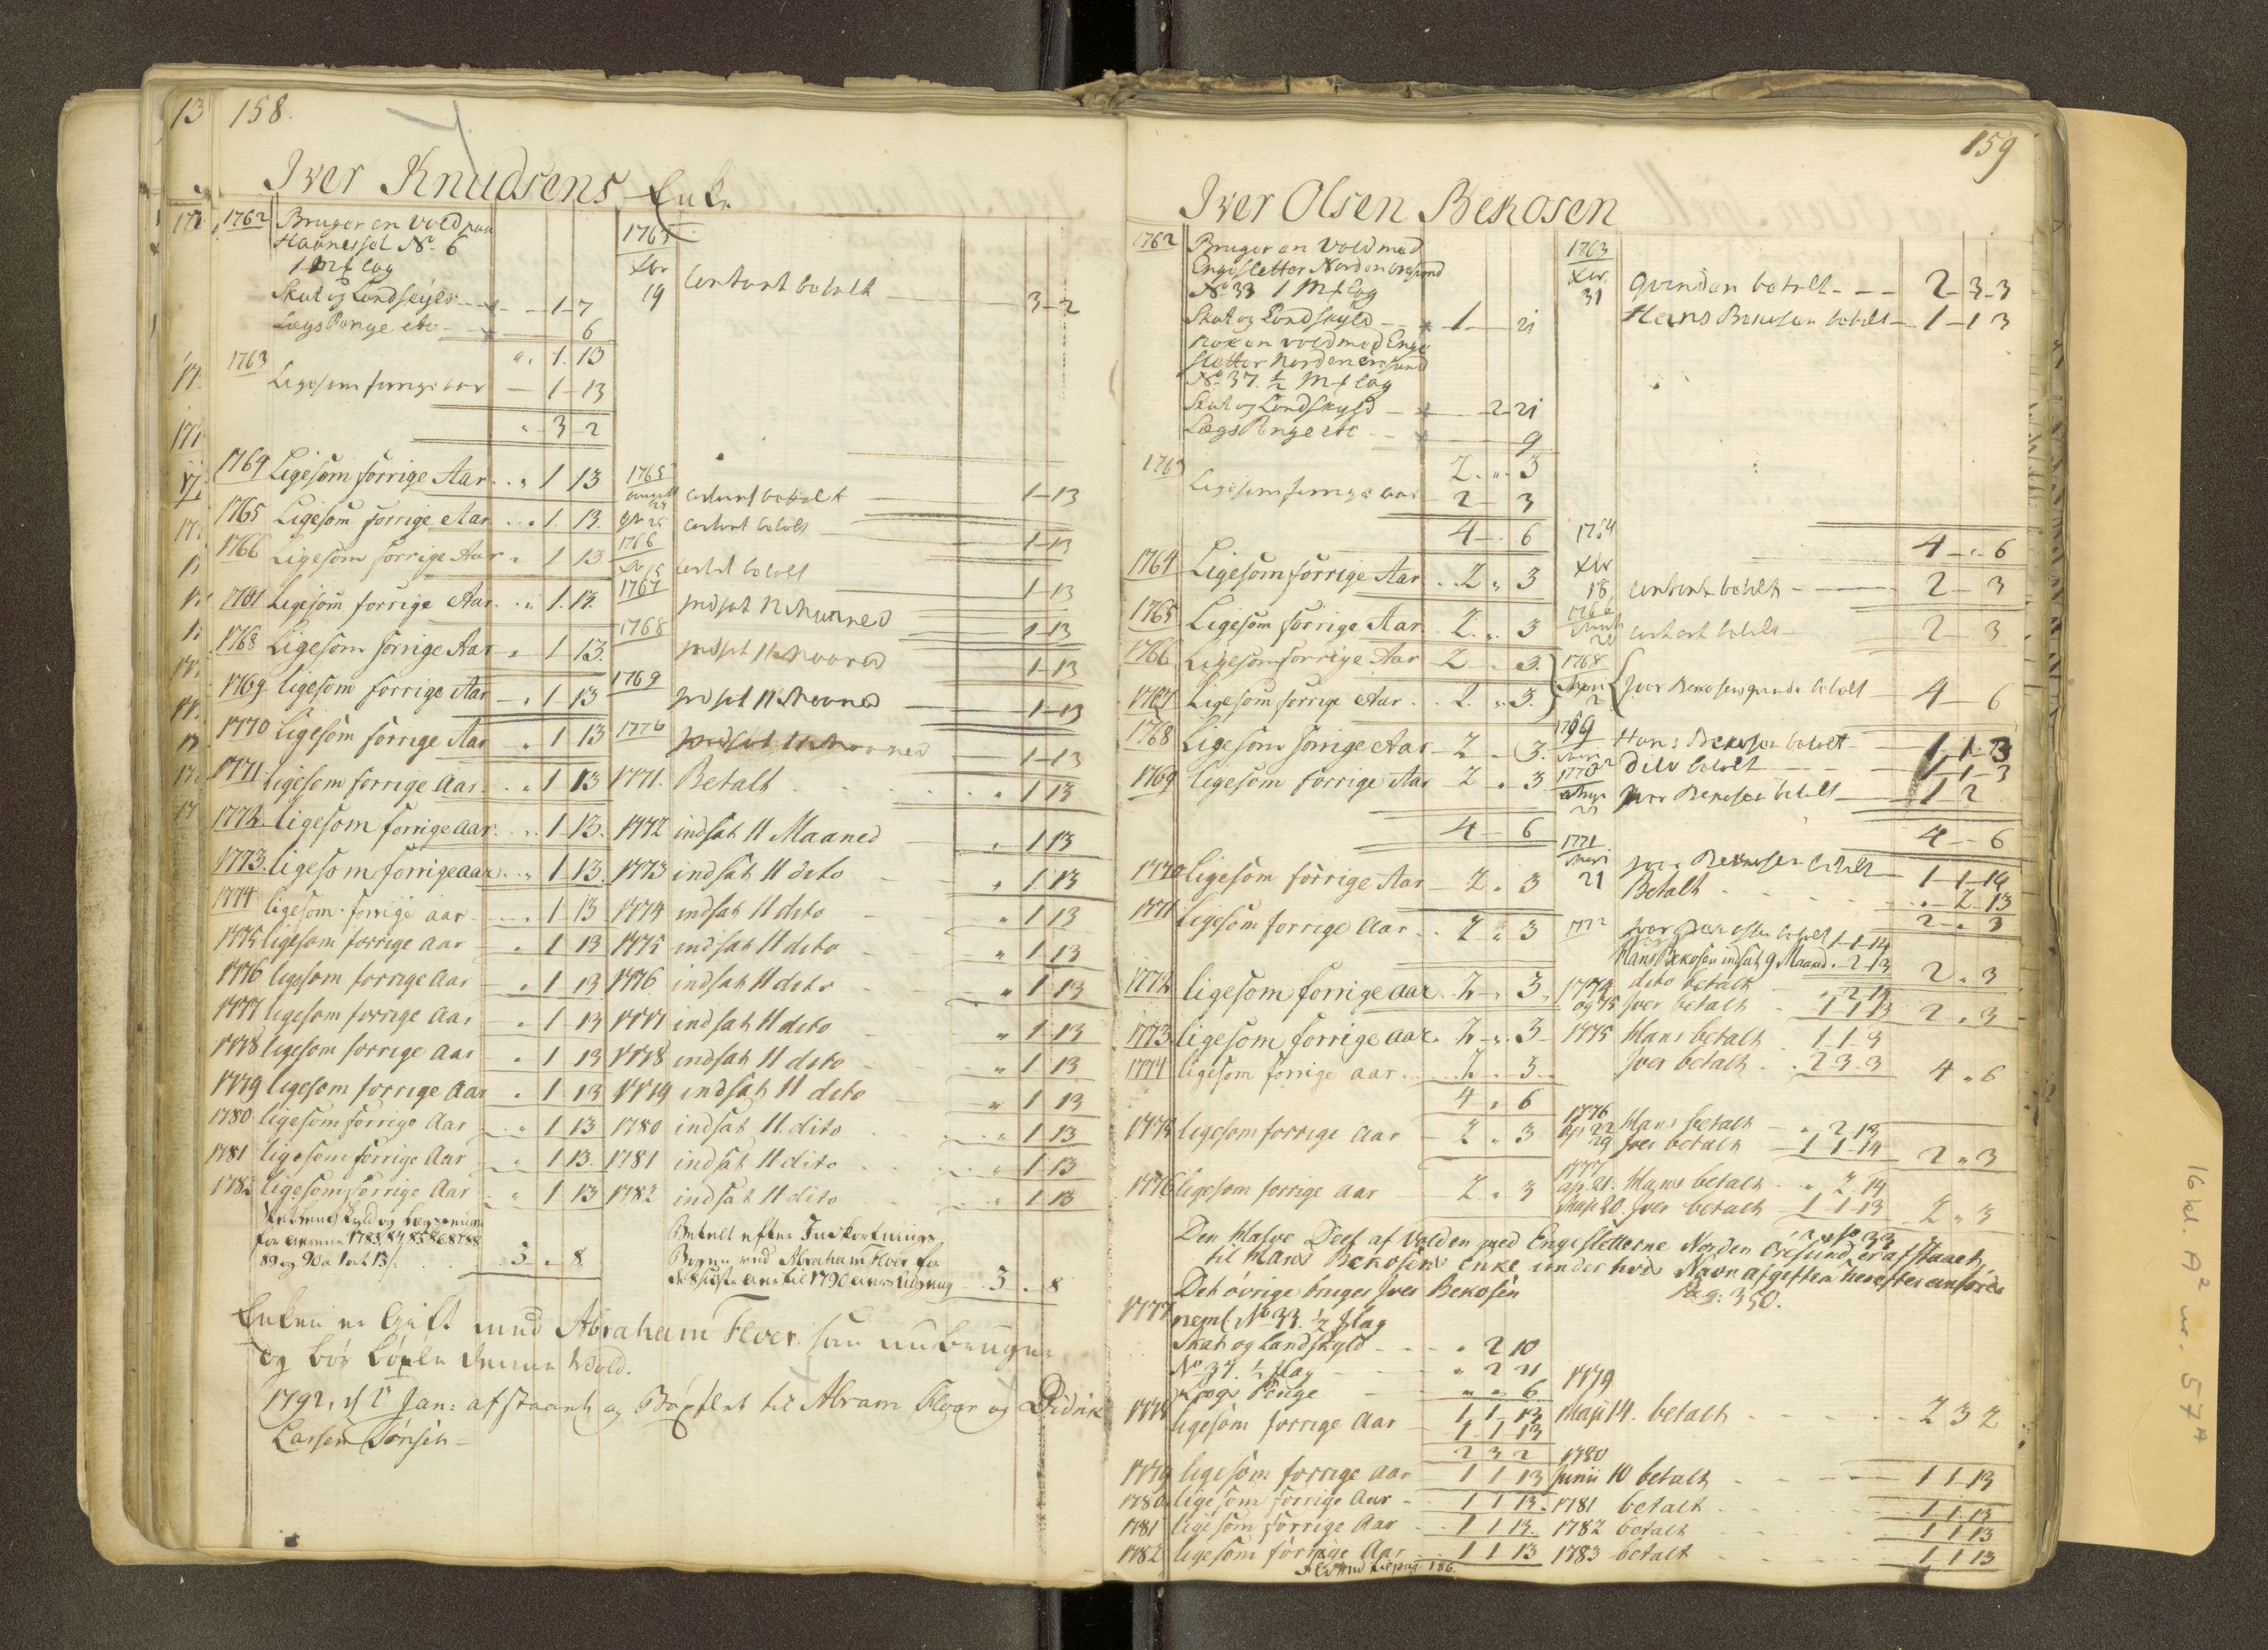 13 158.
Iver Knudsens Enke
1762 Bruger en Vold paa
Havnessel No 6
1 Mk lag
Skat og Landskyld - 1 - 7
Lægs Penge etc - 6
" 1. 13
1763
Ligesom forrige aar - 1 - 13
" 3 - 2
1764 Ligesom forrige Aar " 1 13
1765 Ligesom forrige Aar " 1. 13.
1766 Ligesom forrige Aar " 1 13
Ligesom forrige Aar " 1. 13.
1768 Ligesom forrige Aar " 1 13.
1769 ligesom forrige Aar " 1 13
1770 ligesom forrige Aar " 1 13
1771 ligesom forrige Aar " 1 13
1772 ligesom forrige aar " 1 13.
1773. ligesom forrige aar " 1 13.
1774 ligesom forrige aar " 1 13
1775 ligesom forrige aar " 1 13
1776 ligesom forrige Aar " 1 13
1777 ligesom forrige Aar " 1 13
1778 ligesom forrige Aar " 1 13
1779 ligesom forrige Aar " 1 13
1780 ligesom forrige Aar " 1 13
1781 ligesom forrige Aar " 1 13.
1782 ligesom forrige Aar " 1 13
og
for aarene 1783. 84 85 86 87 88
89 og 90 a 1 ort 13 s. 3 " 8
1763
Xbr
19 Contant betalt 3 - 2
1765
august
23 contant betalt 1 - 13
25 contant betalt 1 - 13
1766
Xbr 15 contant betalt 1 - 13
1767 Indsat 11 Maaned 1 - 13
1768 Indsat 11 Maaned 1 - 13
1769 Indsat 11 Maaned 1 - 13
1770 Indsat 11 Maaned 1 - 13
1771. Betalt " 1 13
1772 indsat 11 Maaned " 1 13
1773 indsat 11 dito " 1 13
1774 indsat 11 dito " 1 13
1775 indsat 11 dito " 1 13
1776 indsat 11 dito " 1 13
1777 indsat 11 dito " 1 13
1778 indsat 11 dito " 1 13
1779 indsat 11 dito " 1 13
1780 indsat 11 dito " 1 13
1781 indsat 11 dito " 1 13
1782 indsat 11 dito " 1 13
Betalt efter Indkortnings
Bogen ved Abraham Floer for
1790 3 " 8
Enken er Gift med Abraham Floer som nu bruger
og bør bøxle denne Vold.
1792, d Jan: afstaaet og Bøxlet til Abram Floer og Didrik
Larsen
159
Iver Olsen Bekosen
1762 Bruger en Vold med
Engesletter Norden oresund
No 33 1 Mk lag
Skat og Landskyld - 1 - 21
Nok en vold med Enge
sletter Norden oresund
No 37. 1/2 Mk lag
Skat og Landskyld - 2 - 21
Lægs Penge etc - 9
2. " 3
1763
Ligesom forrige aar 2 - 3
4 - 6
1764 Ligesom forrige Aar 2 " 3
1765 Ligesom forrige Aar 2. " 3
1766 Ligesom forrige Aar 2 " 3.
1767 Ligesom forrige Aar 2. " 3.
1768 Ligesom forrige Aar 2 " 3.
1769 ligesom forrige Aar 2 " 3
4 - 6
1770 ligesom forrige Aar 2 " 3
1771 ligesom forrige Aar 2 " 3
1772 ligesom forrige aar 2 " 3
1773 ligesom forrige aar 2 " 3
1774 ligesom forrige aar 2 " 3
4 " 6
1775 ligesom forrige Aar 2 " 3
1776 ligesom forrige Aar 2 " 3
1763
Xbr
31 Qvinden betalt 2 - 3 - 3
Hans Bekosen betalt 1 - 1 3
4 - " 6
1764
Xbr
18, contant betalt 2 - 3
1766
contant betalt 2 - 3
1768
Iver Bekosens qvinde betalt 4 - 6
1769
Hans Bekosen betalt 1 - 1 - 3
1770 dito betalt 1 - 1 - 3
Iver Bekosen betalt 1 2
4 - 6
1771
21 Iver Bekosen betalt 1 - 1 - 14
Betalt " 2 13
2 " 3
1772 betalt 1 - 1 - 14
Hans Bekosen indsat 9 Maaned " 2 - 13 2 " 3
1774 dito betalt " 2 14
og 75 Iver betalt 1 1 13 2 " 3
1775 Hans betalt 1 1 3
Iver betalt 2 3 3 4 " 6
1776
22 Hans betalt " 2 13
29 Iver betalt 1 1 14 2 " 3
1777
ap. 21. Hans betalt " 2 14
Maji 20. Iver betalt 1 1 13 2 " 3
Den Halve Deel af Volden med Engesletterne Norden Oresund No 33 er afstaaet
til Hans Bekosens Enke under hvis Navn afgiften herefter anføres
Pag: 350.
Det øvrige bruger Iver Bekosen
1777 neml. No 33. 1/2 Mlag
Skat og Landskyld " 2 10
No 37. 1/2 Mlag " 2 21
Lægs Penge " " 6
1 1 13
1778 ligesom forrige Aar 1 1 13
2 3 2
1779 ligesom forrige Aar 1 1 13
1780 ligesom forrige Aar 1 1 13.
1781 ligesom forrige Aar 1 1 13.
1782 ligesom forrige Aar 1 1 13
pag 186.
1779
Maji 14. betalt 2 3 2
1780
Junii 10 betalt 1 1 13
1781 betalt 1 1 13
1782 betalt 1 1 13
1783 betalt 1 1 13
16 kl. A2 nr. 57A